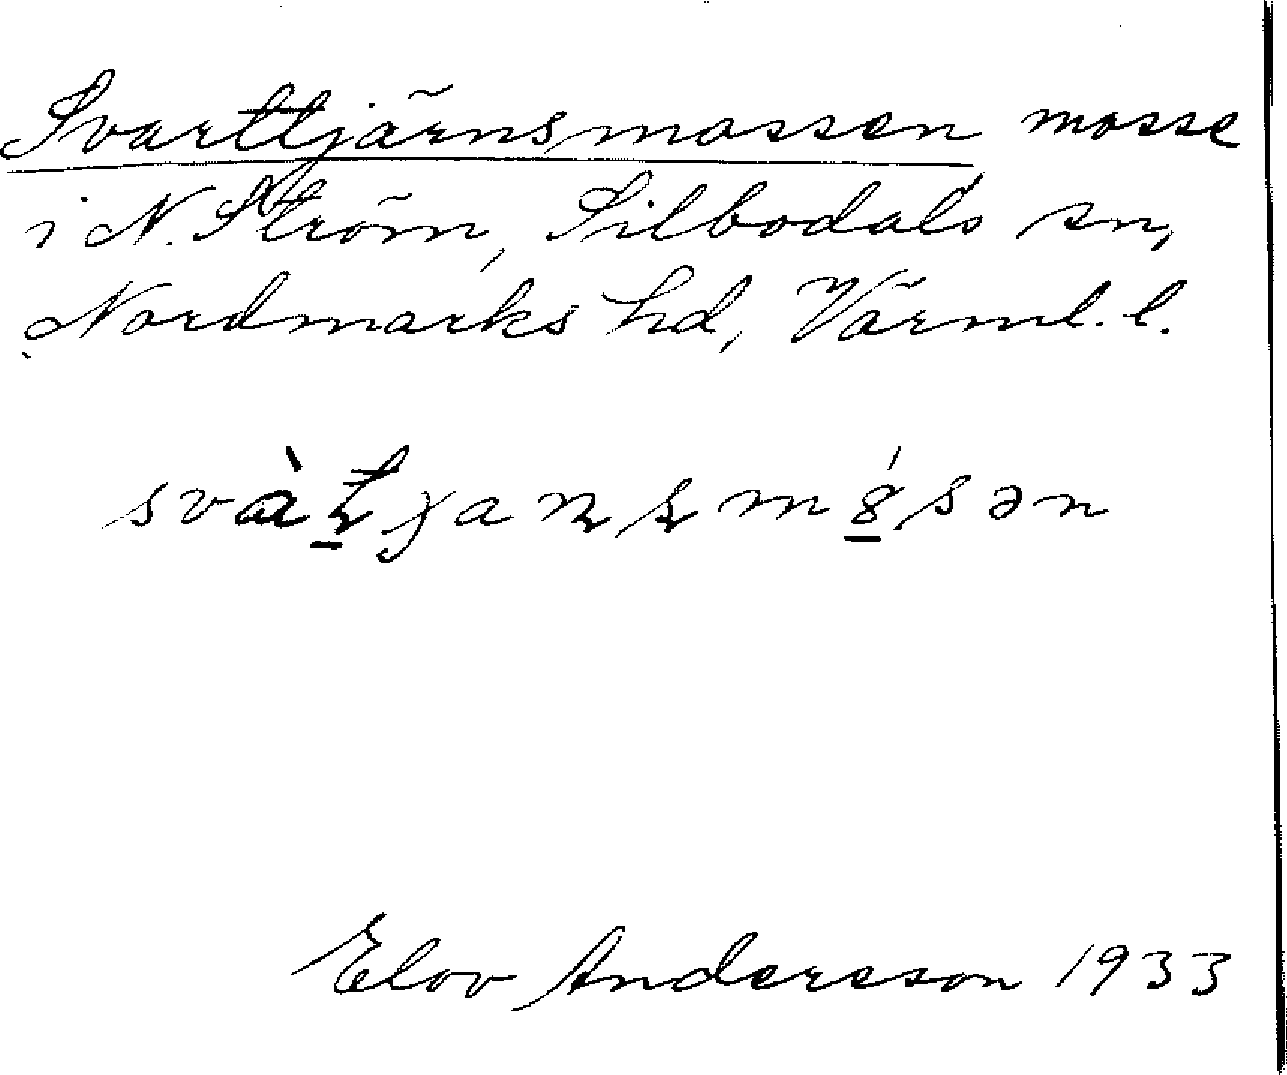 Svarttjärnsmossen mosse
i N. Ström, Silbodals sn,
Nordmarks hd, Värml. l.
Elov Andersson 1933